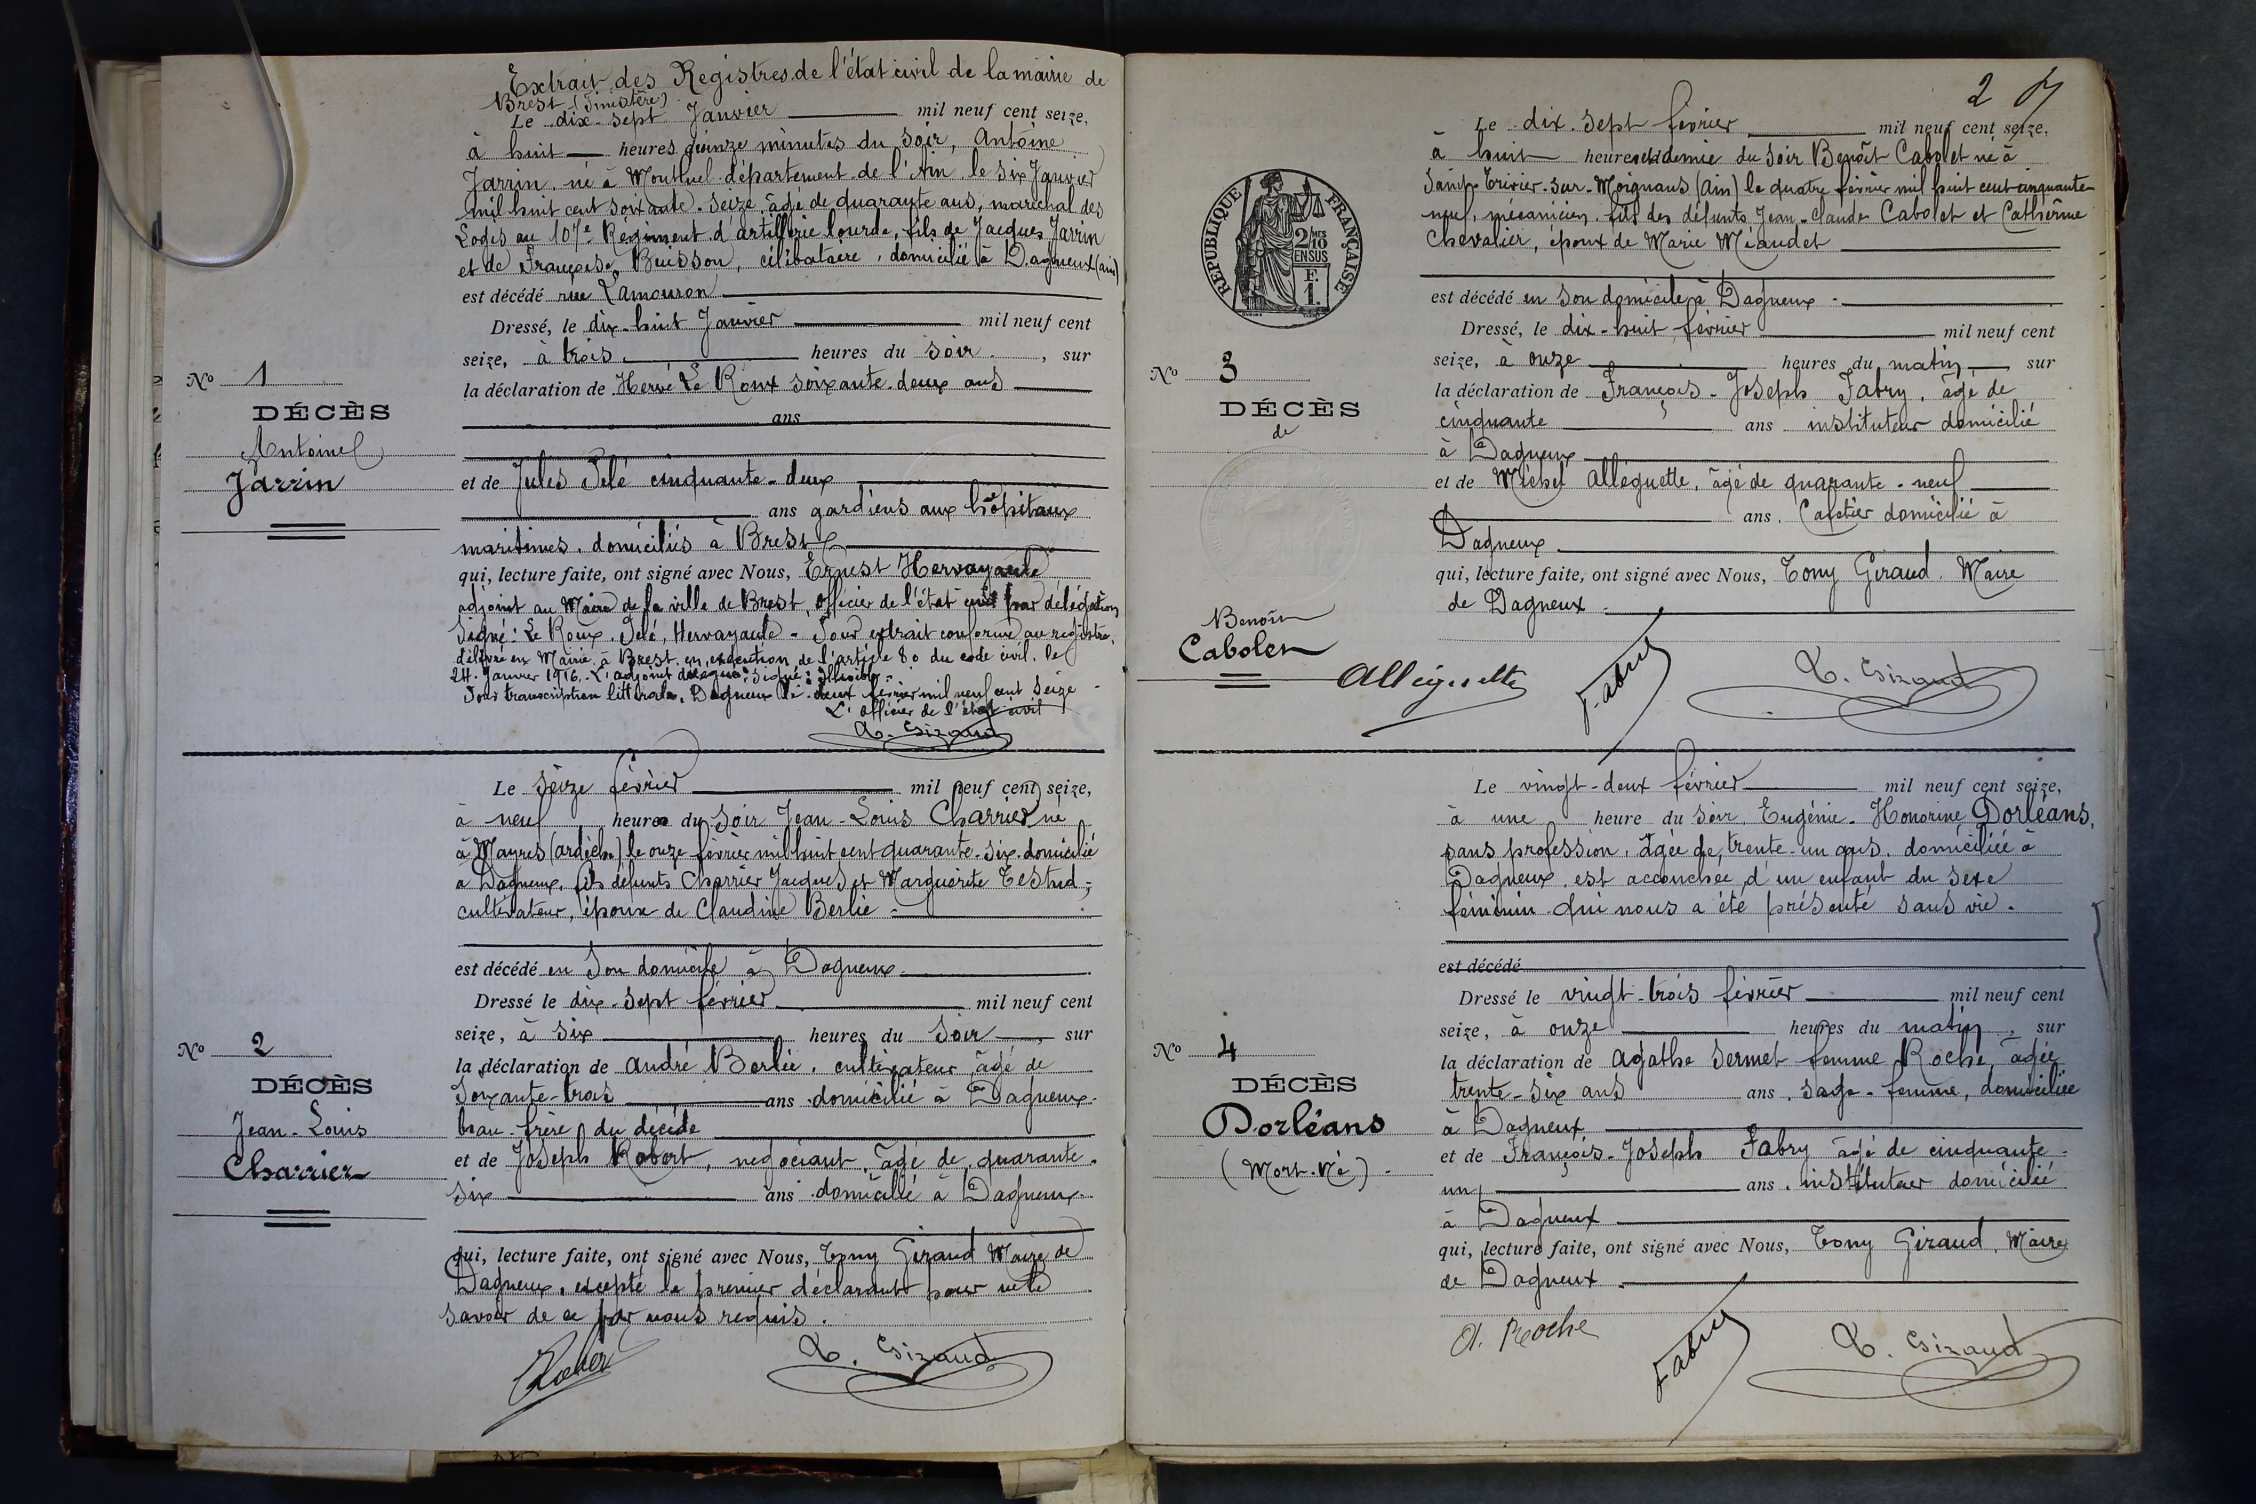 Extrait des Registres de l'état civil de la mairie de
Brest (Finistère)
Le dix-sept Janvier mil neuf cent seize,
à huit heures quinze minutes du soir, Antoine
Jarrin, né à Montluel département de l'Ain le six Janvier
mil huit cent soixante-seize, âgé de quarante ans, maréchal des
Logis au 107e Régiment d'artillerie lourde, fils de Jacques Jarrin
et de Françoise Buisson, célibataire, domicilié à Dagneux (ain)
est décédé rue Lamouron
Dressé, le dix-huit Janvier mil neuf cent
seize, à trois heures du soir, sur
la déclaration de Hervé Le Roux soixante-deux ans
ans
et de Jules Pelé cinquante-deux
ans gardiens aux hôpitaux
maritimes, domiciliés à Brest
qui, lecture faite, ont signé avec Nous, Ernest Hervagault
adjoint au Maire de la ville de Brest, officier de l'état civil par délégation
Signé: Le Roux, Pelé, Hervagault - Pour extrait conforme au registre,
délivré en Mairie à Brest en exécution de l'article 80 du code civil, le
24 Janvier 1916. L'adjoint délégué: signé: Illisible -
Pour transcription littérale, Dagneux le deux février mil neuf cent seize
L'officier de l'état civil
T. Giraud
No 1
DÉCÈS
Antoine
Jarrin
Le seize février mil neuf cent seize,
à neuf heures du soir Jean-Louis Charrier né
à Mayres (ardèche) le onze février mil huit cent quarante-six, domicilié
à Dagneux, fils défunts Charrier Jacques et Marguerite Testud,
cultivateur, époux de Claudine Berlie -
est décédé en son domicile à Dagneux
Dressé le dix-sept février mil neuf cent
seize, à six heures du soir, sur
la déclaration de André Berlie, cultivateur, âgé de
soixante-trois ans domicilié à Dagneux
beau-frère du décédé
et de Joseph Robert, négociant, âgé de quarante-
six ans domicilié à Dagneux
qui, lecture faite, ont signé avec Nous, Tony Giraud Maire de
Dagneux, excepté le premier déclarant pour ne le
savoir de ce par nous requis.
Robert
T. Giraud
No 2
DÉCÈS
Jean-Louis
Charrier
2
Le dix-sept février mil neuf cent seize,
à huit heures et demie du soir Benoît Cabolet né à
Saint-Trivier-sur-Moignans (ain) le quatre février mil huit cent cinquante-
neuf, mécanicien, fils des défunts Jean-Claude Cabolet et Catherine
Chevalier, époux de Marie Méaudet
est décédé en son domicile à Dagneux -
Dressé, le dix-huit février mil neuf cent
seize, à onze heures du matin, sur
la déclaration de François-Joseph Fabry, âgé de
cinquante ans instituteur domicilié
à Dagneux
et de Michel Alléguette, âgé de quarante-neuf
ans. Cafetier domicilié à
Dagneux
qui, lecture faite, ont signé avec Nous, Tony Giraud, Maire
de Dagneux
Alléguette
F. Fabry
T. Giraud
RÉPUBLIQUE FRANÇAISE
2/10 MES
EN SUS
F
1.
No 3
DÉCÈS
de
Benoît
Cabolet
Le vingt-deux février mil neuf cent seize,
à une heure du soir, Eugénie-Honorine Dorléans,
sans profession, âgée de trente-un ans, domiciliée à
Dagneux est accouchée d'un enfant du sexe
féminin qui nous a été présenté sans vie.
est décédé
Dressé le vingt-trois février mil neuf cent
seize, à onze heures du matin, sur
la déclaration de Agathe Sermet femme Roche, âgée
trente-six ans ans, sage-femme, domiciliée
à Dagneux
et de François-Joseph Fabry âgé de cinquante-
un ans, instituteur domicilié
à Dagneux
qui, lecture faite, ont signé avec Nous, Tony Giraud, Maire
de Dagneux
A. Roche
F. Fabry
T. Giraud
No 4
DÉCÈS
Dorléans
(Mort-Né)